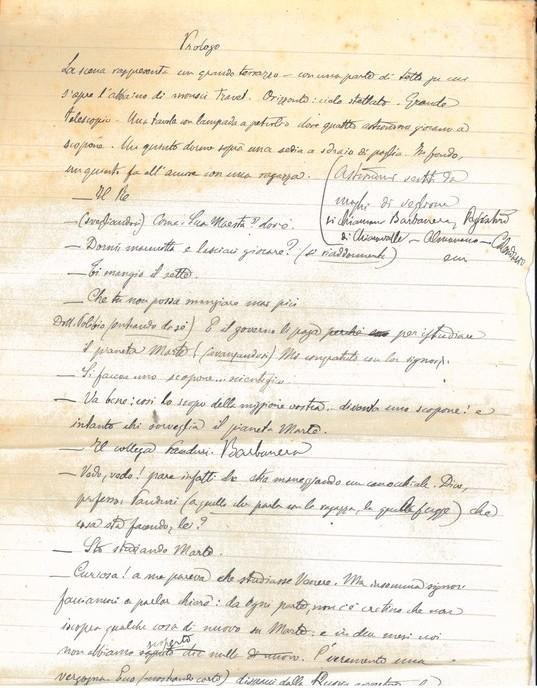 Prologo
La scena rappresenta un grande terrazzo – con una parte di tetto su cui
s'apre l'abbaino di monsù Travet. Orizzonte: cielo stellato – Grande
telescopio – Una tavola con lampada a petrolio dove quattro astronomi giocano a
scopone. Un quinto dorme sopra una sedia a sdraio di paglia. In fondo,
un quinto fa all'amore con una ragazza.
(Astronomi vestiti da
maghi di veglione
si chiamano Barbanera, Pescatore
di Chiaravalle – Almanacco –
ecc
— Il Re
— (svegliandosi) Come. Sua Maestà? Dov'è
— Dormi marmotta e lasciaci giocare? (si riaddormenta)
— Ti mangio il sette.
— Che tu non possa mangiare mai più
Dott. Polibio (entrando da sé) E il governo li paga perché per istudiare
il pianeta Marte! (avanzandosi) Mi congratulo con loro signori.
— Si faceva uno scopone... scientifico.
— Va bene: così lo scopo della missione vostra... diventa uno scopone! e
intanto chi sorveglia il pianeta Marte.
— Il collega Barbanera
— Vedo, vedo! pare infatti che stia maneggiando un canocchiale. Dica,
professor (a quello che parla con la ragazza, la quale fugge) che
cosa sta facendo, lei?
— Sto studiando Marte.
— Curiosa! a me pareva che studiasse Venere. Ma insomma signori
facciamoci a parlar chiaro: da ogni parte, non c'è cretino che non
scopra qualche cosa di nuovo su Marte: e in dieci mesi noi
non abbiamo scoperto nulla di nuovo. È veramente una
vergogna. Ecco (mostrando carte) dispacci dalla Russia